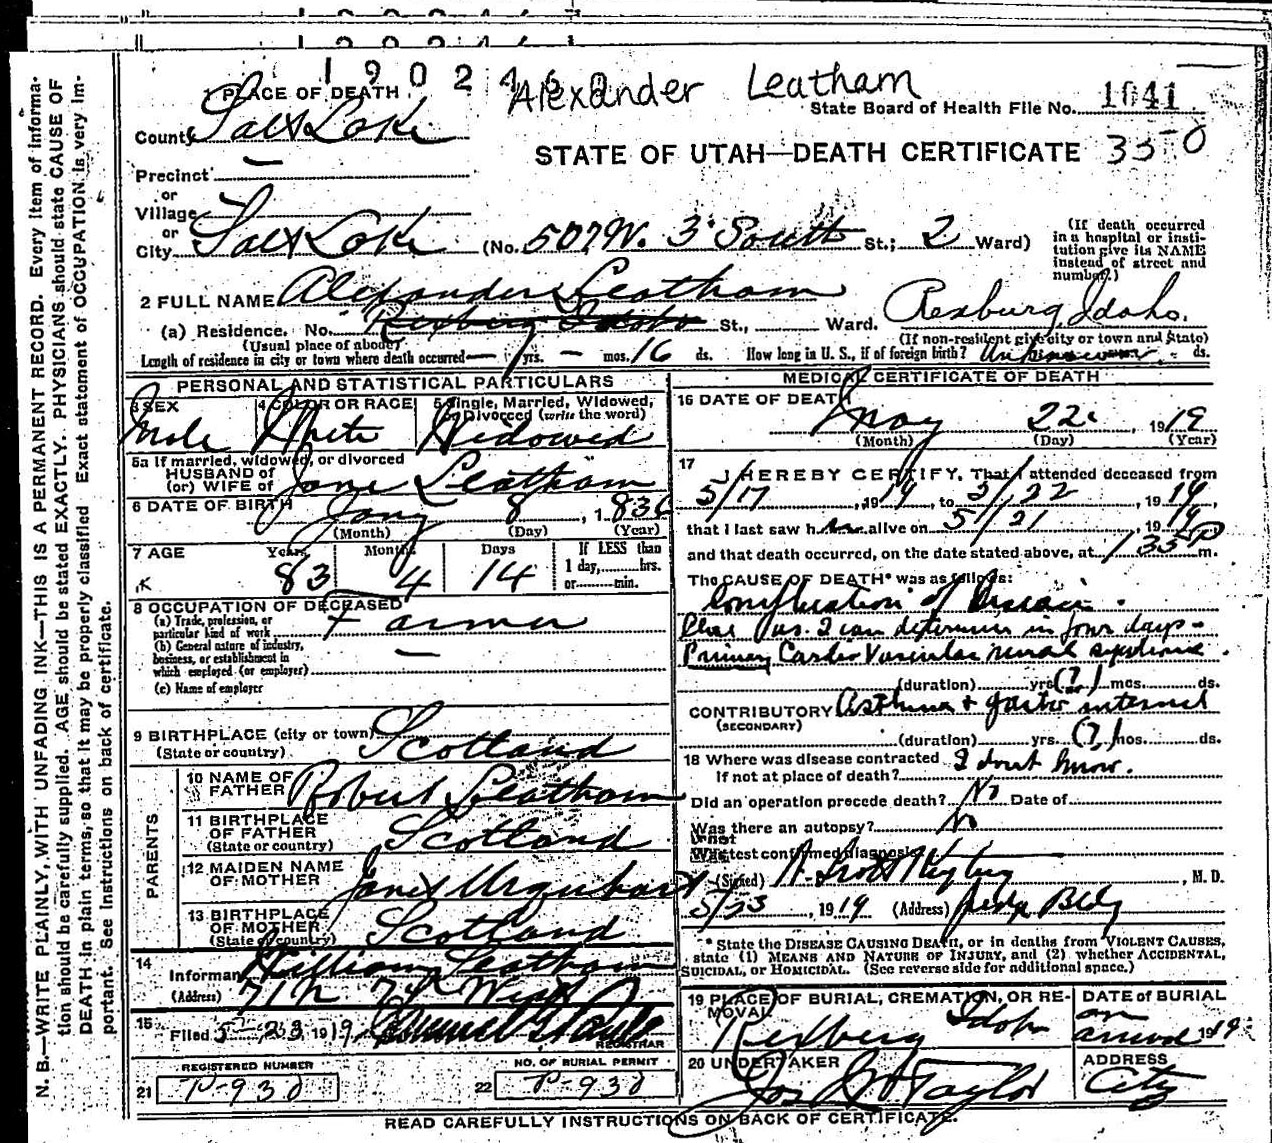 1902460
Alexander Leatham
State Board of Health File No. 1041
1 PLACE OF DEATH
County Salt Lake
STATE OF UTAH—DEATH CERTIFICATE 3350
Precinct —
or
Village
or
City Salt Lake (No. 507 W. 3 South St.; 2 Ward)
(If death occurred in a hospital or insti-
tution give its NAME
instead of street and
number.)
2 FULL NAME Alexander Leatham
(a) Residence. No. Rexburg Idaho St., Ward. Rexburg, Idaho.
(Usual place of abode) (If non-resident give city or town and State)
Length of residence in city or town where death occurred — yrs. — mos. 16 ds. How long in U. S., if of foreign birth? Unknown ds.
PERSONAL AND STATISTICAL PARTICULARS
3 SEX Male
4 COLOR OR RACE White
5 Single, Married, Widowed,
or Divorced (write the word) Widowed
5a If married, widowed, or divorced
HUSBAND of
(or) WIFE of Jane Leatham
6 DATE OF BIRTH Jany 8, 1836
(Month) (Day) (Year)
7 AGE Years Months Days If LESS than
1 day, hrs.
or min.
83 4 14
8 OCCUPATION OF DECEASED
(a) Trade, profession, or
particular kind of work Farmer
(b) General nature of industry,
business, or establishment in
which employed (or employer) —
(c) Name of employer
9 BIRTHPLACE (city or town)
(State or country) Scotland
PARENTS
10 NAME OF
FATHER Robert Leatham
11 BIRTHPLACE
OF FATHER
(State or country) Scotland
12 MAIDEN NAME
OF MOTHER Janet Urquhart
13 BIRTHPLACE
OF MOTHER
(State or country) Scotland
14
Informant William Leatham
(Address) 71 N 7th West
15
Filed 5-23 1919
REGISTRAR
REGISTERED NUMBER
21 P-930
NO. OF BURIAL PERMIT
22 P-930
MEDICAL CERTIFICATE OF DEATH
16 DATE OF DEATH
May 22 1919
(Month) (Day) (Year)
17
I HEREBY CERTIFY, That I attended deceased from
5/17, 1919, to 5/22, 1919,
that I last saw h im alive on 5/21, 1919
and that death occurred, on the date stated above, at 1 35 P m.
The CAUSE OF DEATH* was as follows:
Complication of Diseases.
as I can determine in four days-
Primary Cardio Vascular renal syndrome.
(duration) yrs (?) mos. ds.
CONTRIBUTORY Asthma + gastro
(SECONDARY)
(duration) yrs. (?) mos. ds.
18 Where was disease contracted
If not at place of death? I dont know.
Did an operation precede death? No Date of
Was there an autopsy? No
What test confirmed diagnosis?
(Signed) , M. D.
5/23, 1919 (Address) Judge Bldg
* State the DISEASE CAUSING DEATH, or in deaths from VIOLENT CAUSES,
state (1) MEANS AND NATURE OF INJURY, and (2) whether ACCIDENTAL,
SUICIDAL, or HOMICIDAL. (See reverse side for additional space.)
19 PLACE OF BURIAL, CREMATION, OR RE-
MOVAL Rexberg Idah
DATE OF BURIAL
on
arrival 1919
20 UNDERTAKER
Jos Taylor
ADDRESS
City
READ CAREFULLY INSTRUCTIONS ON BACK OF CERTIFICATE.
N. B.—WRITE PLAINLY, WITH UNFADING INK—THIS IS A PERMANENT RECORD. Every item of informa-
tion should be carefully supplied. AGE should be stated EXACTLY. PHYSICIANS should state CAUSE OF
DEATH in plain terms, so that it may be properly classified. Exact statement of OCCUPATION is very im-
portant. See instructions on back of certificate.